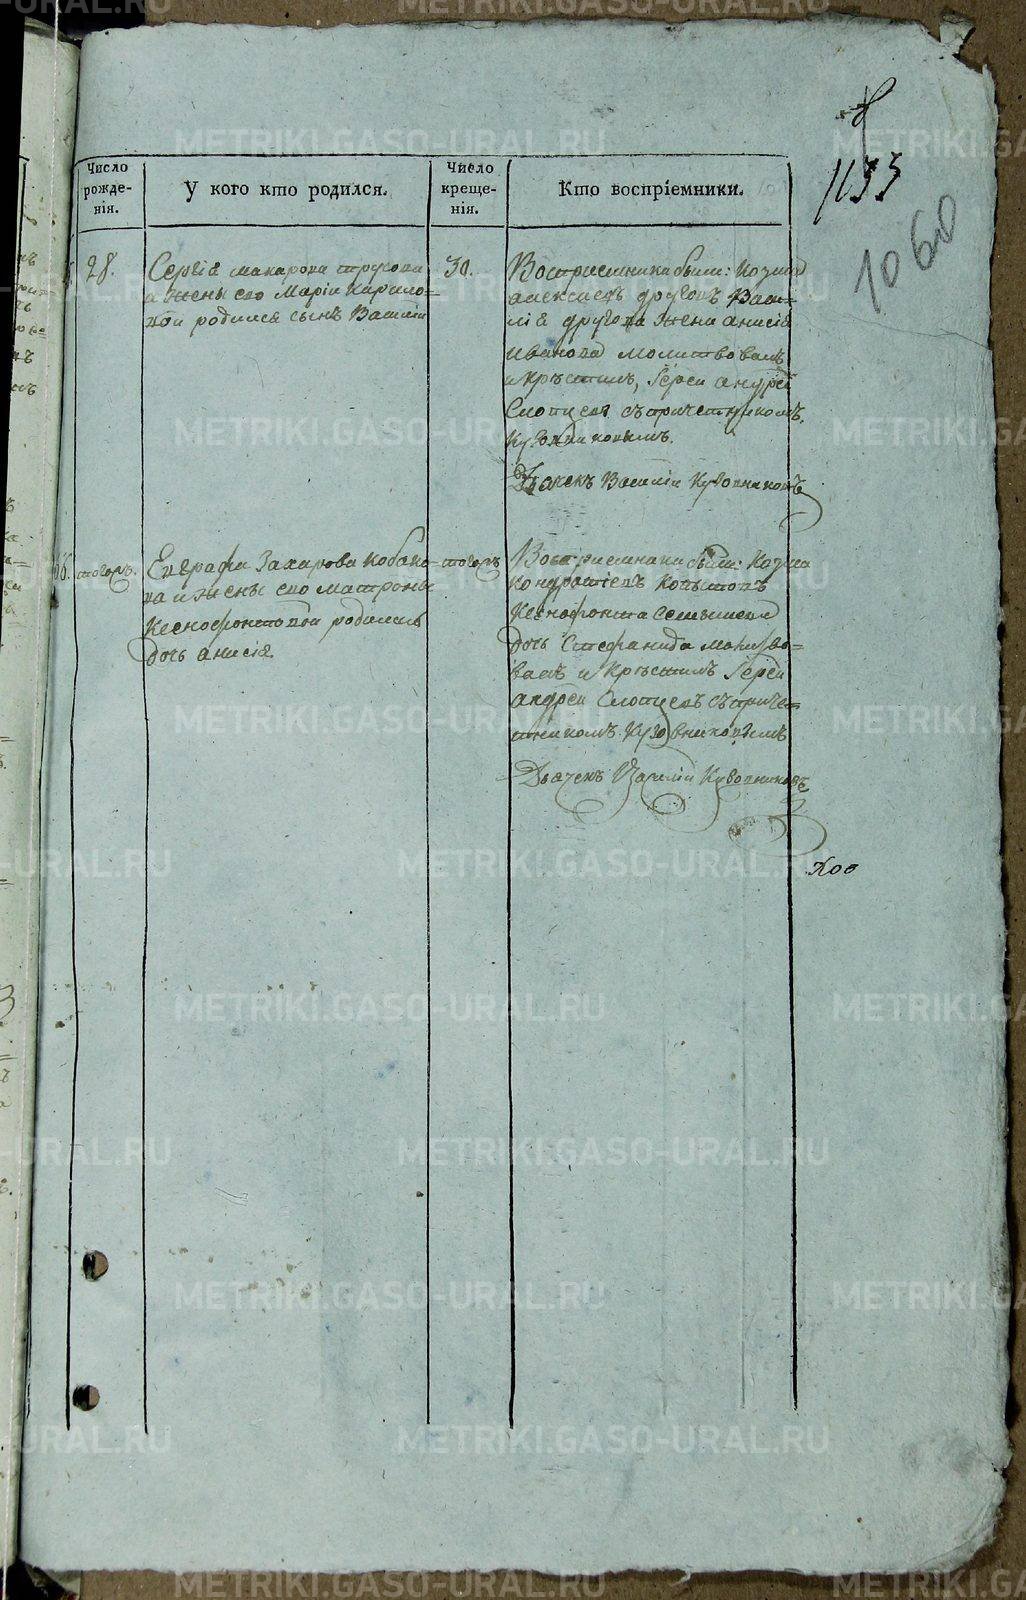 8
1133
1060
Число рожде-нія.
У кого кто родился.
Число креще-нія.
Кто воспріемники.
28.
Сергія макарова
и жены его Маріи Кирило=
вой родился сынъ Василіи
30.
Воспріемника были: Козма
алексеевъ друговъ Васи=
лія другова жена анисія
иванова молитвовалъ
и крѣстилъ, Іереи андреи
Слопцевъ съ причетникомъ
Кузовниковымъ.
Дьячекъ Василіи Кузовниковъ
66.
тогожъ.
Евграфа Захарова кобако=
ва и жены его матроны
Ксенофонтовой родилась
дочь анисія
тогожъ
Воспріемники были: Козма
кондратьевъ копытовъ
Ксенофонта
дочь Стефанида молитво=
валъ и крѣстилъ Іереи
андреи Слопцевъ съ причет=
никомъ Кузовниковымъ
Дьячекъ Василіи Кузовниковъ
METRIKI.GASO-URAL.RU